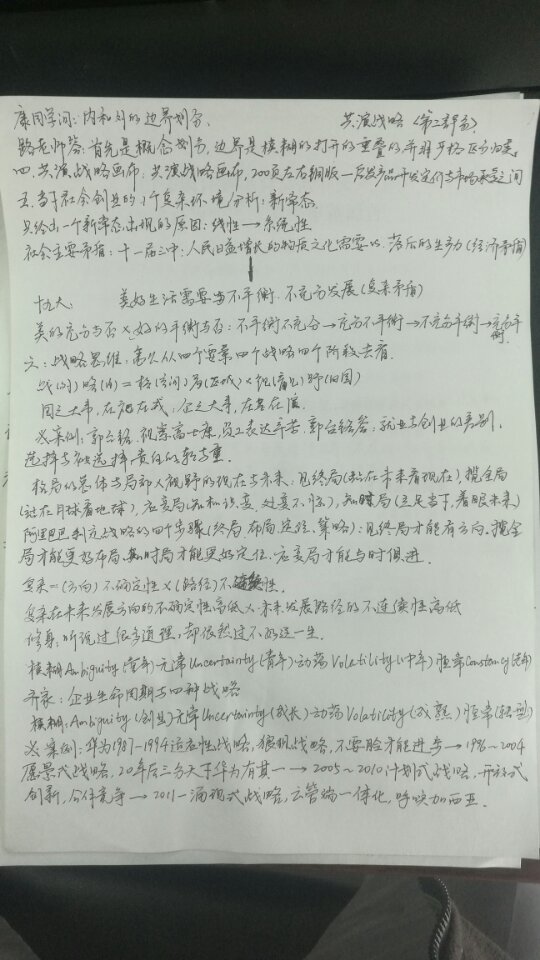 康同学问：内和外的边界划分。 共演战略（第二群岛）
路老师答：首先是概念划分，边界是模糊的打开的重叠的并非严格区分归类。
四、共演战略画布：共演战略画布，200页左右铜版—后发产品开发定价与市场承受之间
五、当下社会创业的1个复杂环境分析：新常态
只给出一个新常态出现的原因：线性→系统性
社会主要矛盾：十一届三中：人民日益增长的物质文化需要vs.落后的生产力（经济矛盾）
十九大： 美好生活需要与不平衡、不充分发展（复杂矛盾）
美的充分与否×好的平衡与否：不平衡不充分→充分不平衡→不充分平衡→充分平衡
六：战略思维：高人从四个要素四个战略四个阶段去看。
战（何）略（何）=格（空间）局（区域）×视（看见）野（旧国）
国之大事，在祀在戎；企之大事，在名在演
必案例：郭台铭，视察富士康，员工表达辛苦，郭台铭答：就业与创业的差别，
选择与被选择，责任的轻与重。
格局的总体与局部×视野的现在与未来：见终局（站在未来看现在），揽全局
（站在月球看地球），应变局（知机识变，处变不惊），知时局（立足当下，着眼未来）
阿里巴巴制定战略的四个步骤（终局、布局、定位、策略）：见终局才能有方向，揽全
局才能更好布局，知时局才能更好定位，应变局才能与时俱进。
复杂=（方向）不确定性×（路径）不连续性。
复杂在未来发展方向的不确定性高低×未来发展路径的不连续性高低
修身：听说过很多道理，却依然过不好这一生
模糊Ambiguity（童年）无常Uncertainty（青年）动荡Volatility（中年）恒常Constancy（老年）
齐家：企业生命周期与四种战略
模糊：Ambiguity（创业）无常Uncertainty（成长）动荡Volatility（成熟）恒常（转型）
必案例：华为1987-1994适应性战略，狼狈战略，不要脸才能进步→1996~2004
愿景式战略，20年后三分天下华为有其一→2005~2010计划式战略，开放式
创新，合作竞争→2011—涌现式战略，云管端一体化，呼唤加西亚。